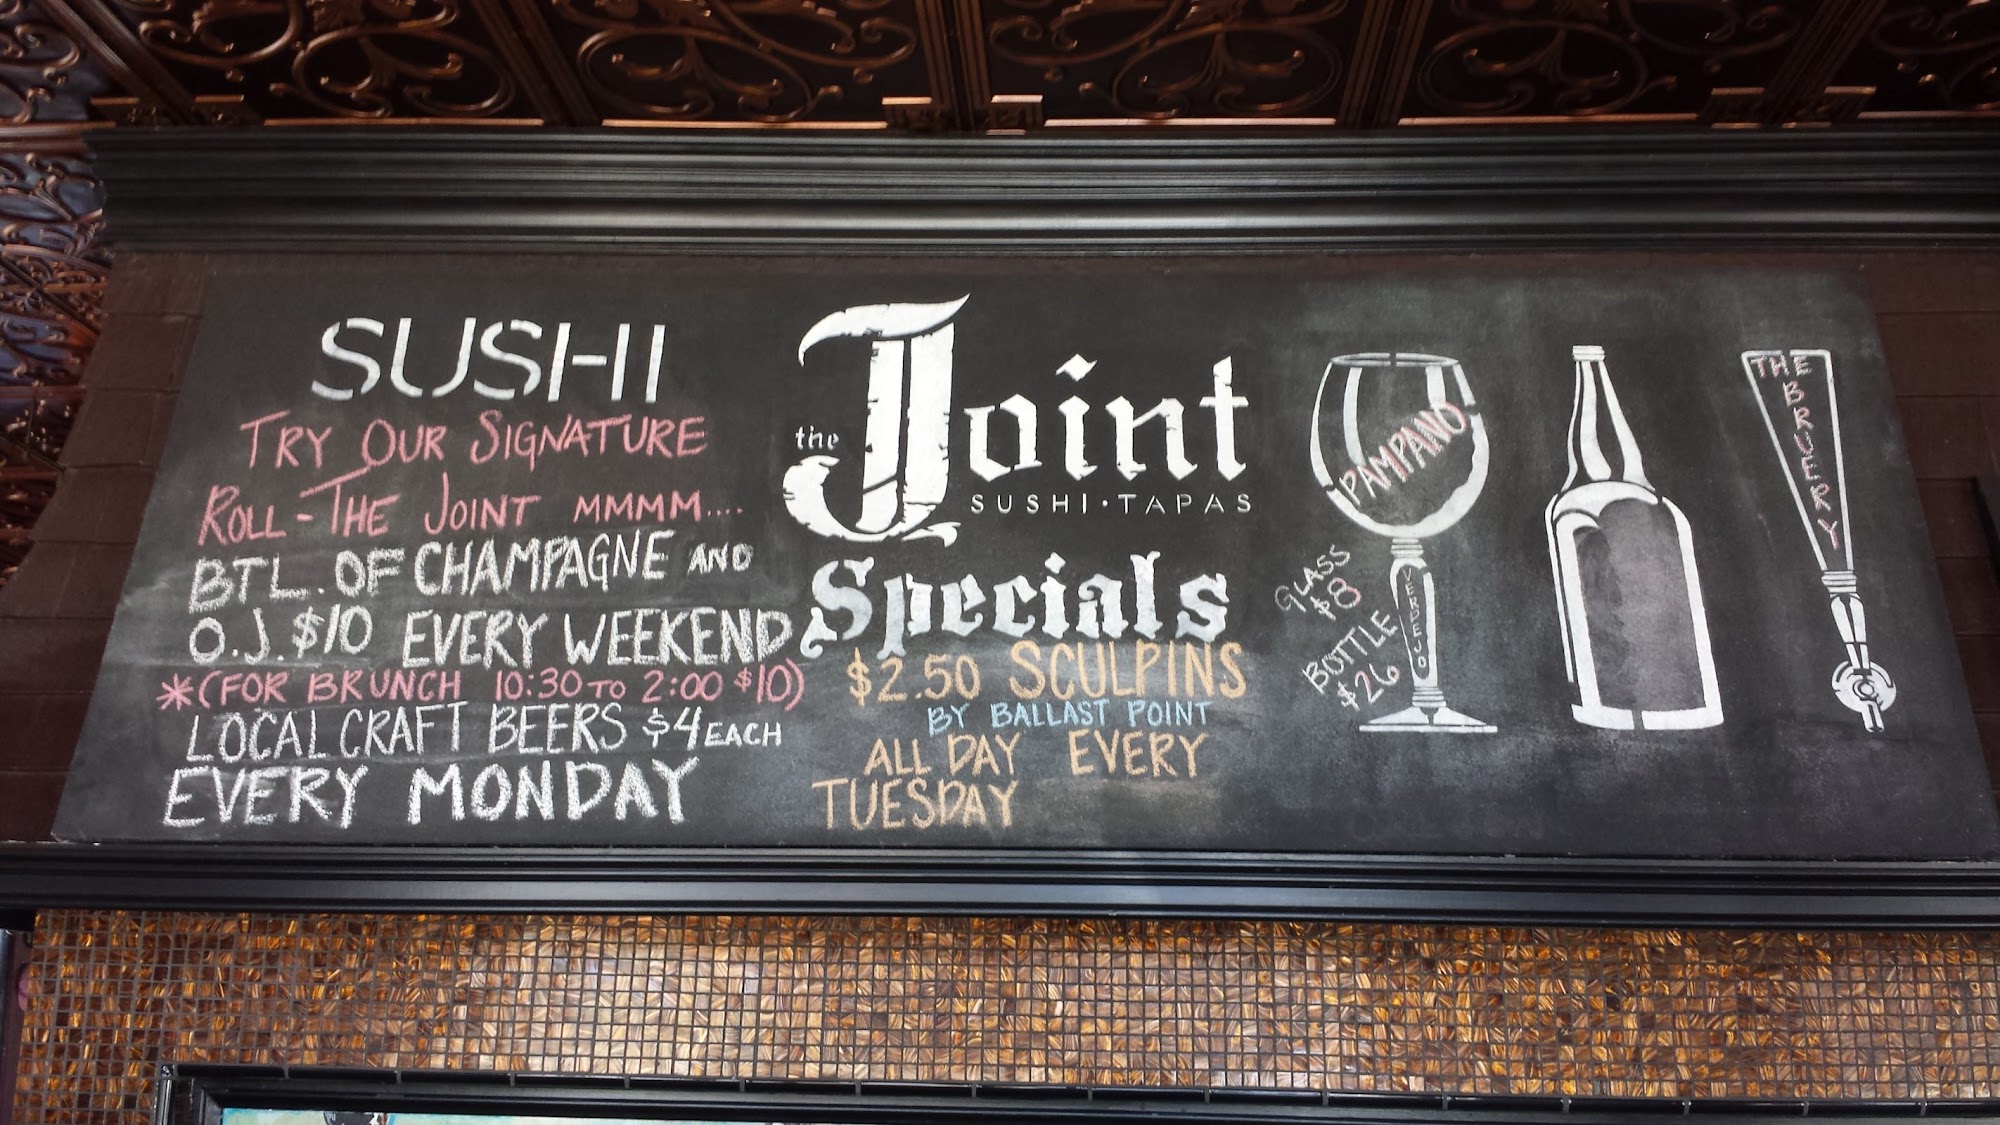 SUSHI
TRY OUR SIGNATURE
ROLL-THE JOINT MMMM....
BTL. OF CHAMPAGNE AND
O.J. $10 EVERY WEEKEND
*(FOR BRUNCH 10:30 TO 2:00 $10)
LOCAL CRAFT BEERS $4 EACH
EVERY MONDAY
the Joint
SUSHI • TAPAS
Specials
$2.50 SCULPINS
BY BALLAST POINT
ALL DAY EVERY
TUESDAY
PAMPANO
VERDEJO
GLASS
$8
BOTTLE
$26
THE
BRUERY